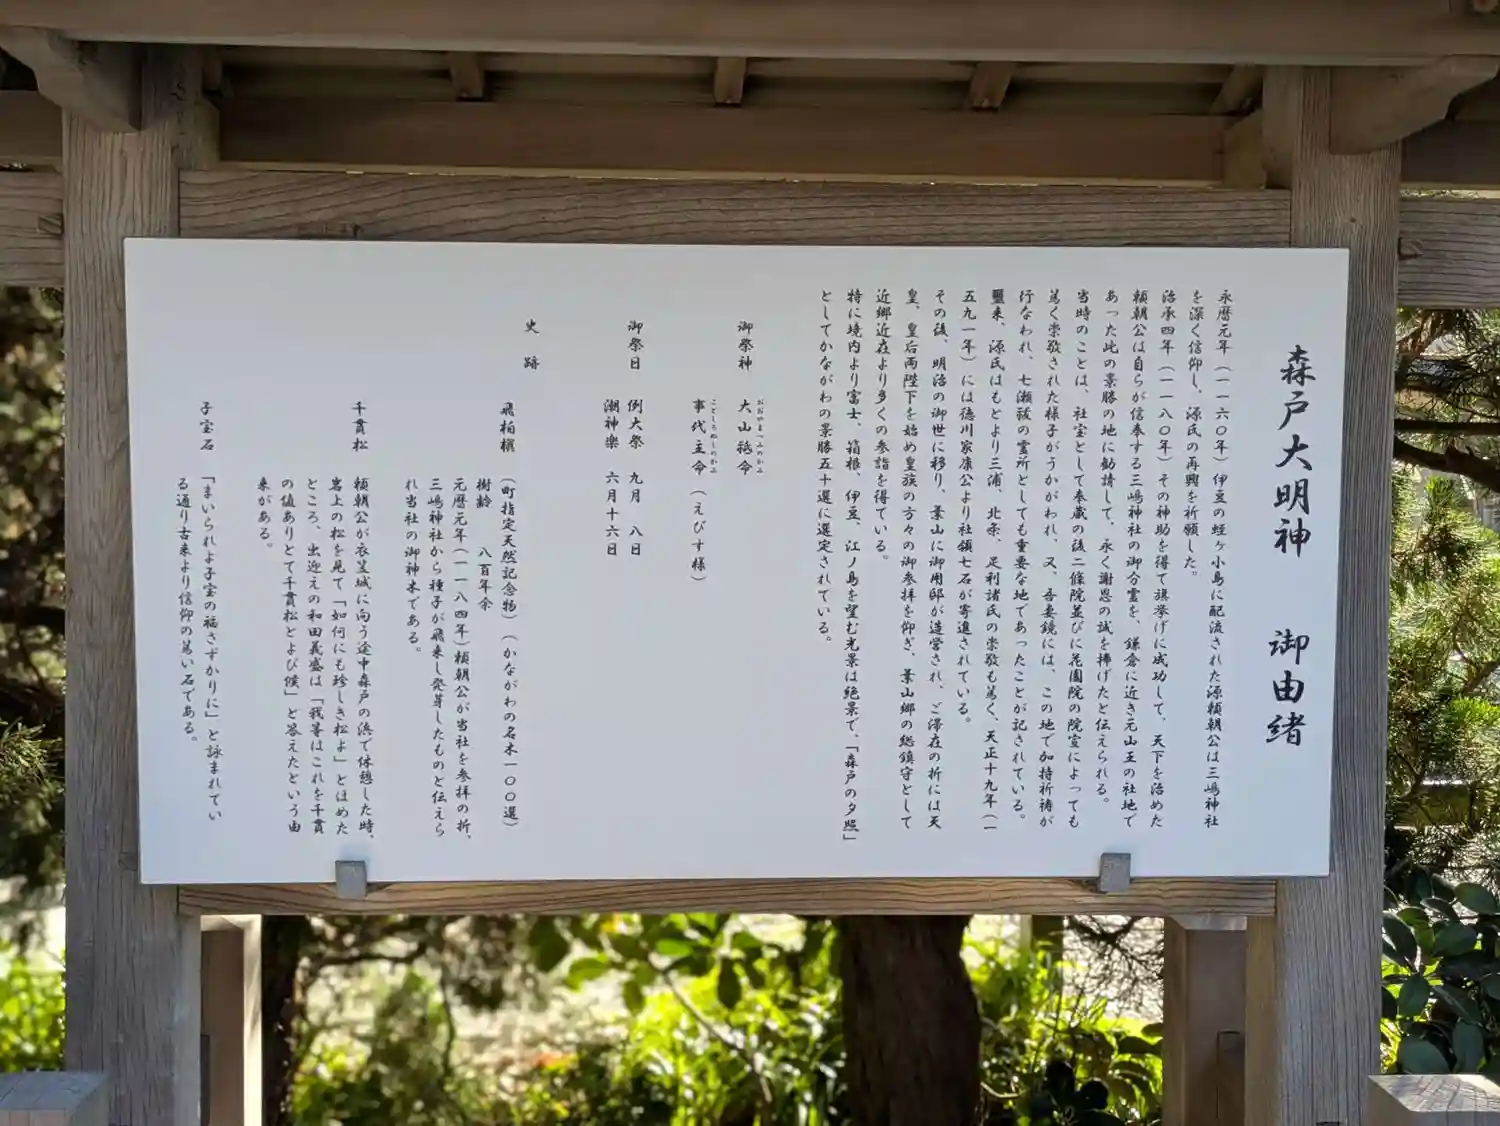 森戸大明神　御由緒
永暦元年（一一六〇年）伊豆の蛭ヶ小島に配流された源頼朝公は三嶋神社
を深く信仰し、源氏の再興を祈願した。
治承四年（一一八〇年）その神助を得て旗挙げに成功して、天下を治めた
頼朝公は自らが信奉する三嶋神社の御分霊を、鎌倉に近き元山王の社地で
あった此の景勝の地に勧請して、永く謝恩の誠を捧げたと伝えられる。
当時のことは、社宝として奉蔵の後二條院並びに花園院の院宣によっても
篤く崇敬された様子がうかがわれ、又、吾妻鏡には、この地で加持祈祷が
行なわれ、七瀬祓の霊所としても重要な地であったことが記されている。
爾来、源氏はもとより三浦、北条、足利諸氏の崇敬も篤く、天正十九年（一
五九一年）には徳川家康公より社領七石が寄進されている。
その後、明治の御世に移り、葉山に御用邸が造営され、ご滞在の折には天
皇、皇后両陛下を始め皇族の方々の御参拝を仰ぎ、葉山郷の総鎮守として
近郷近在より多くの参詣を得ている。
特に境内より富士、箱根、伊豆、江ノ島を望む光景は絶景で、「森戸の夕照」
としてかながわの景勝五十選に選定されている。
御祭神　大山祗命
おおやまつみのかみ
事代主命（えびす様）
ことしろぬしのかみ
御祭日　例大祭　九月　八日
潮神楽　六月十六日
史　跡
飛柏槇　（町指定天然記念物）（かながわの名木一〇〇選）
樹齢　　八百年余
元暦元年（一一八四年）頼朝公が当社を参拝の折、
三嶋神社から種子が飛来し発芽したものと伝えら
れ当社の御神木である。
千貫松　頼朝公が衣笠城に向う途中森戸の浜で休憩した時、
岩上の松を見て「如何にも珍しき松よ」とほめた
ところ、出迎えの和田義盛は「我等はこれを千貫
の値ありとて千貫松とよび候」と答えたという由
来がある。
子宝石　「まいられよ子宝の福さずかりに」と詠まれてい
る通り古来より信仰の篤い石である。